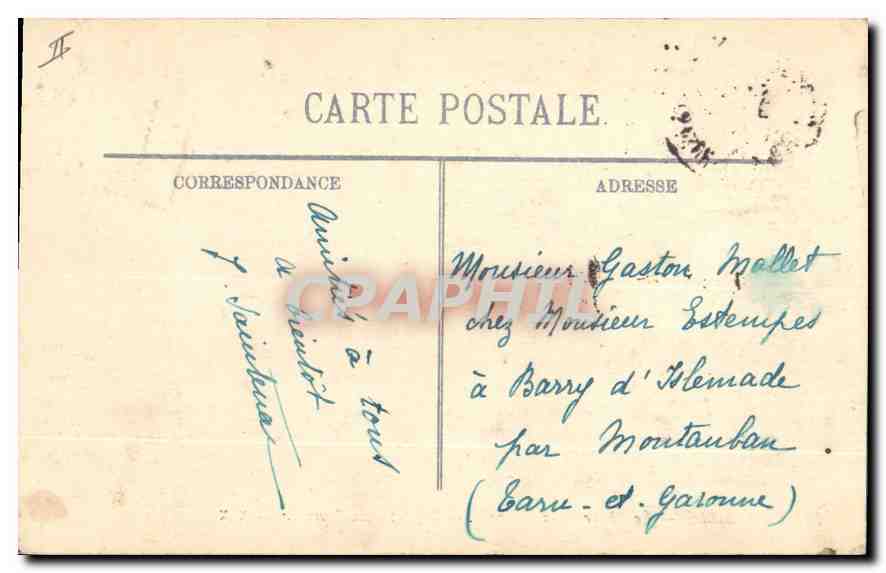 II
CARTE POSTALE
CORRESPONDANCE
Amitiés à tous
à bientôt
ADRESSE
Monsieur Gaston Mallet
chez Monsieur Estempes
à Barry d'Islemade
par Montauban
(Tarn-et-Garonne)
CPAPHIL